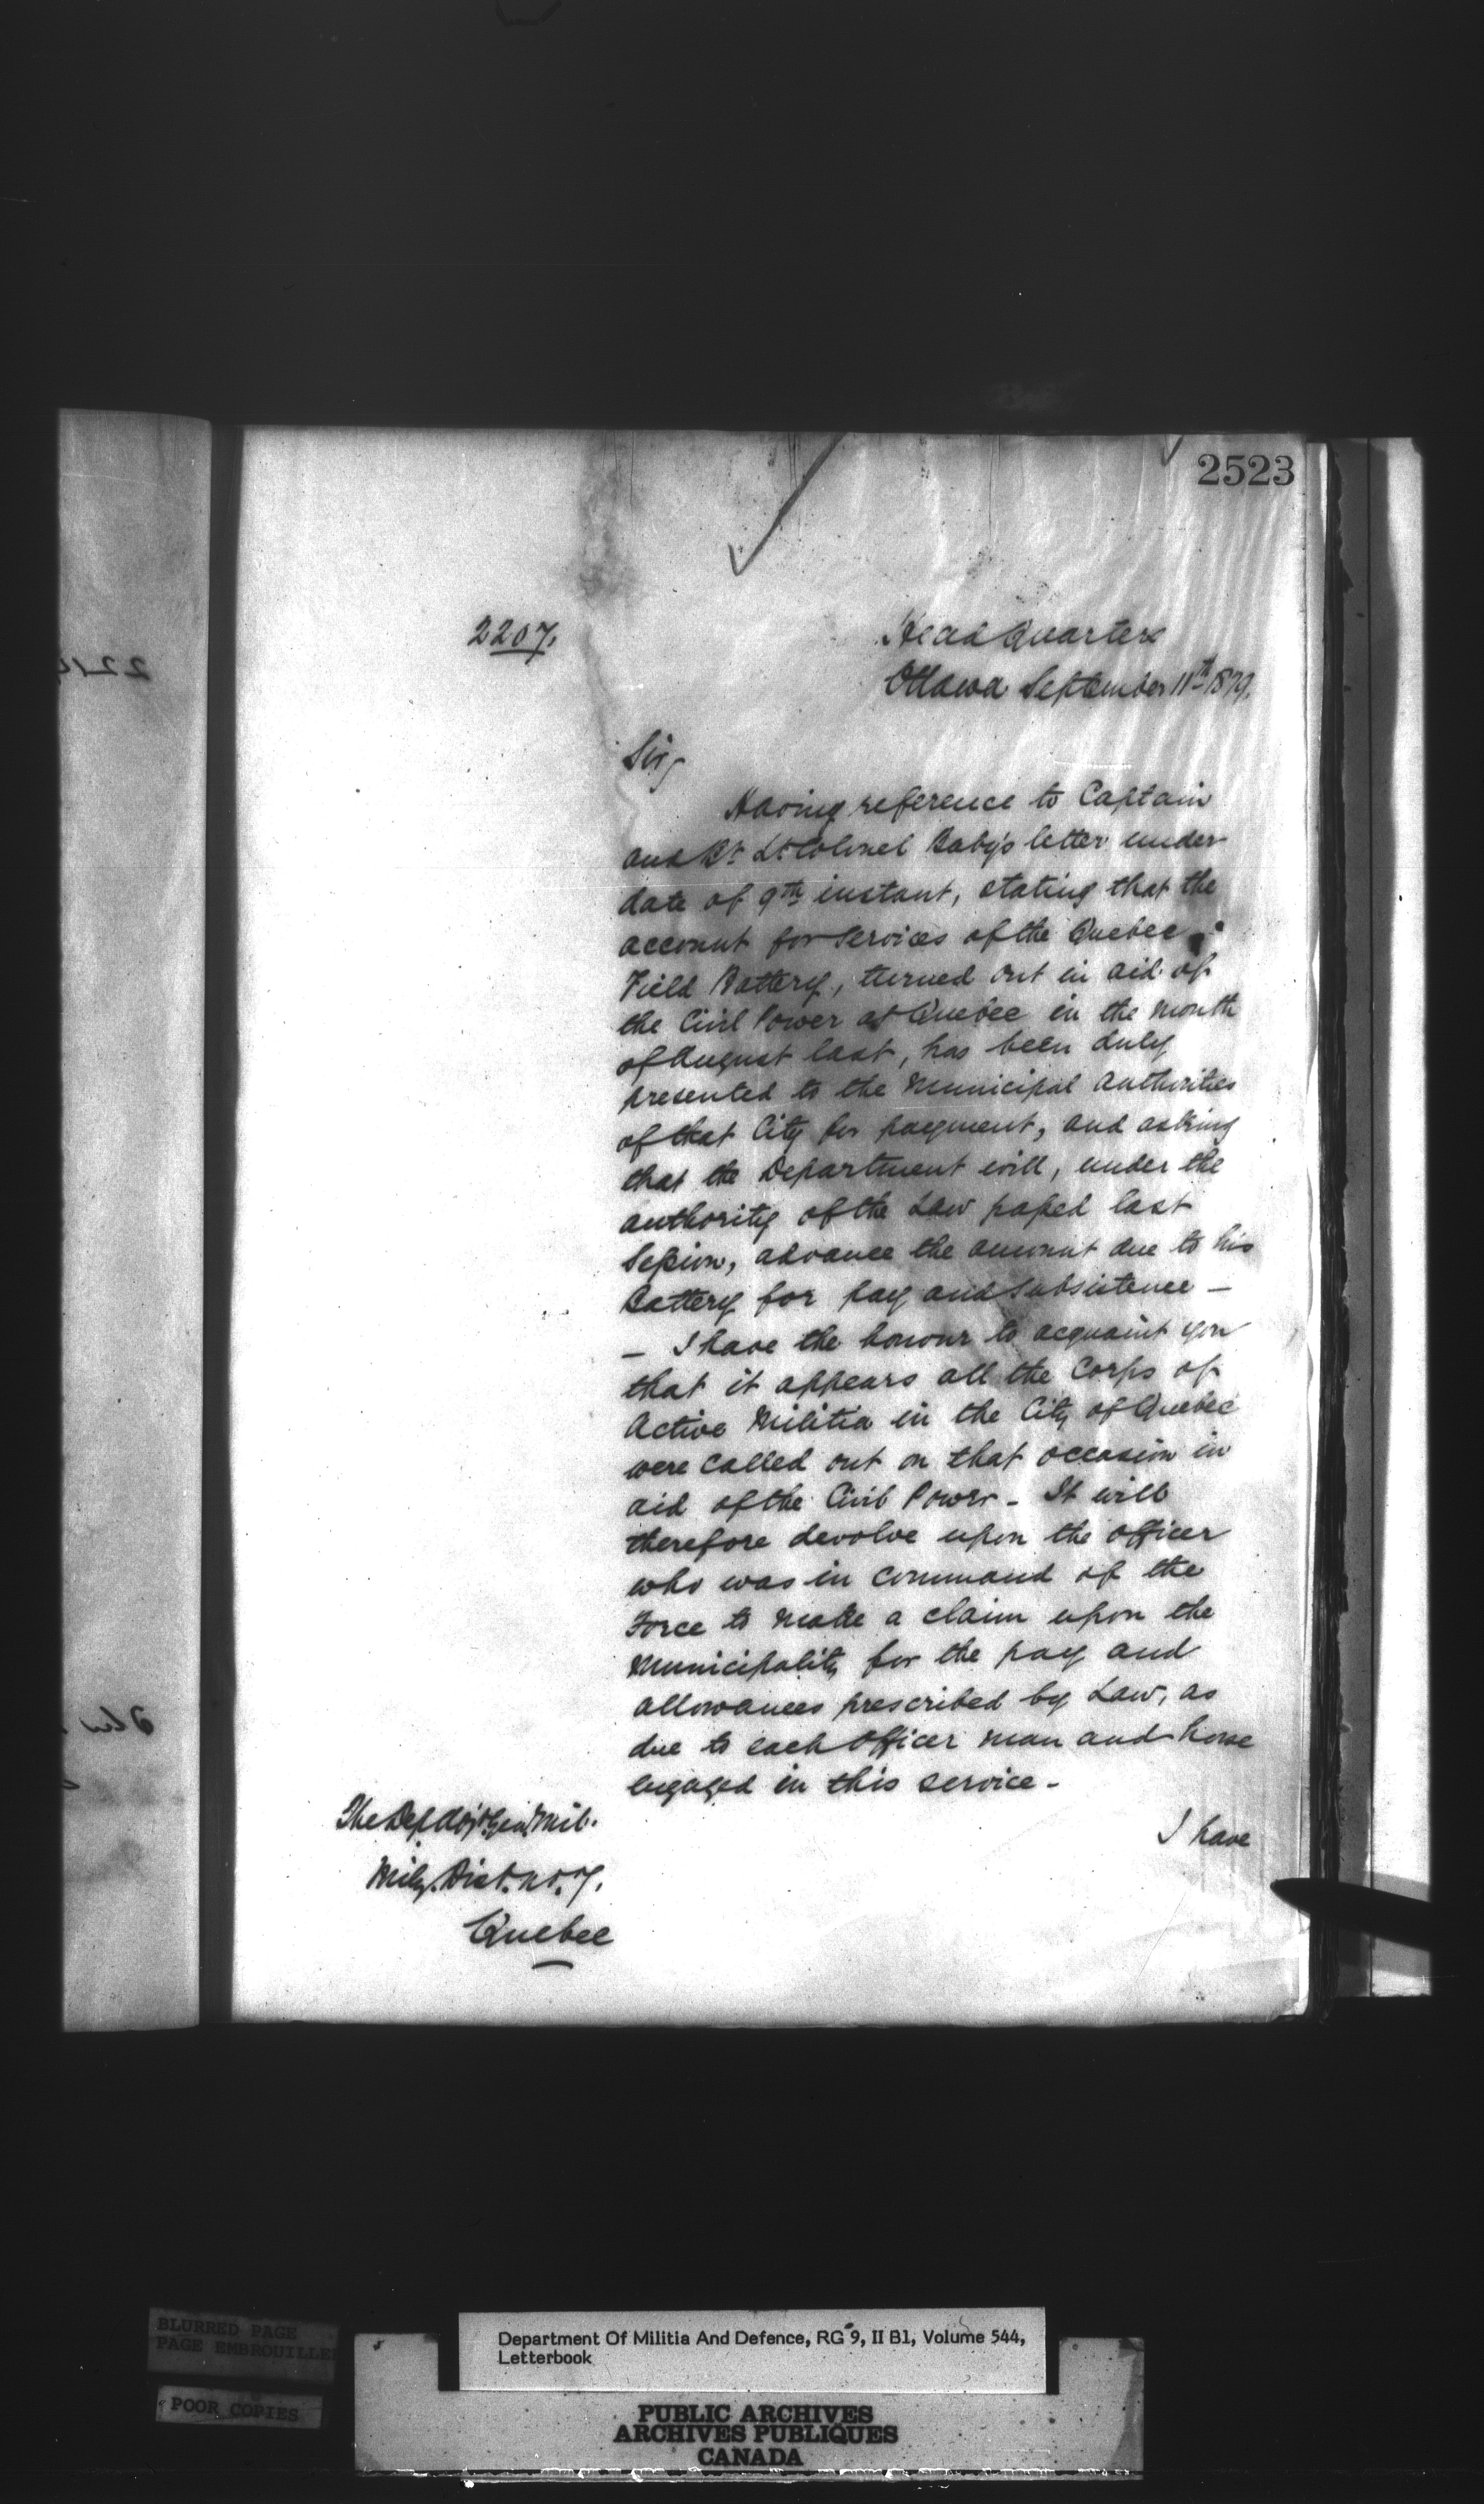 2523
2207.
Head Quarters
Ottawa September 11th 1879.
Sir,
Having reference to Captain
and Bt Lt Colonel Baby's letter under
date of 9th instant, stating that the
account for services of the Quebec
Field Battery, turned out in aid of
the Civil Power at Quebec in the month
of August last, has been duly
presented to the Municipal Authorities
of that City for payment, and asking
that the Department will, under the
authority of the Law passed last
Session, advance the amount due to his
Battery for pay and subsistence —
— I have the honour to acquaint you
that it appears all the Corps of
Active Militia in the City of Quebec
were called out on that occasion in
aid of the Civil Power - It will
therefore devolve upon the Officer
who was in command of the
Force to make a claim upon the
Municipality for the pay and
allowances prescribed by Law, as
due to each Officer man and horse
engaged in this service -
I have
The Dep Adjt Genl Mil.
Mily. Dist. No. 7.
Quebec
BLURRED PAGE
PAGE EMBROUILLE
POOR COPIES
Department Of Militia And Defence, RG 9, II B1, Volume 544,
Letterbook
PUBLIC ARCHIVES
ARCHIVES PUBLIQUES
CANADA